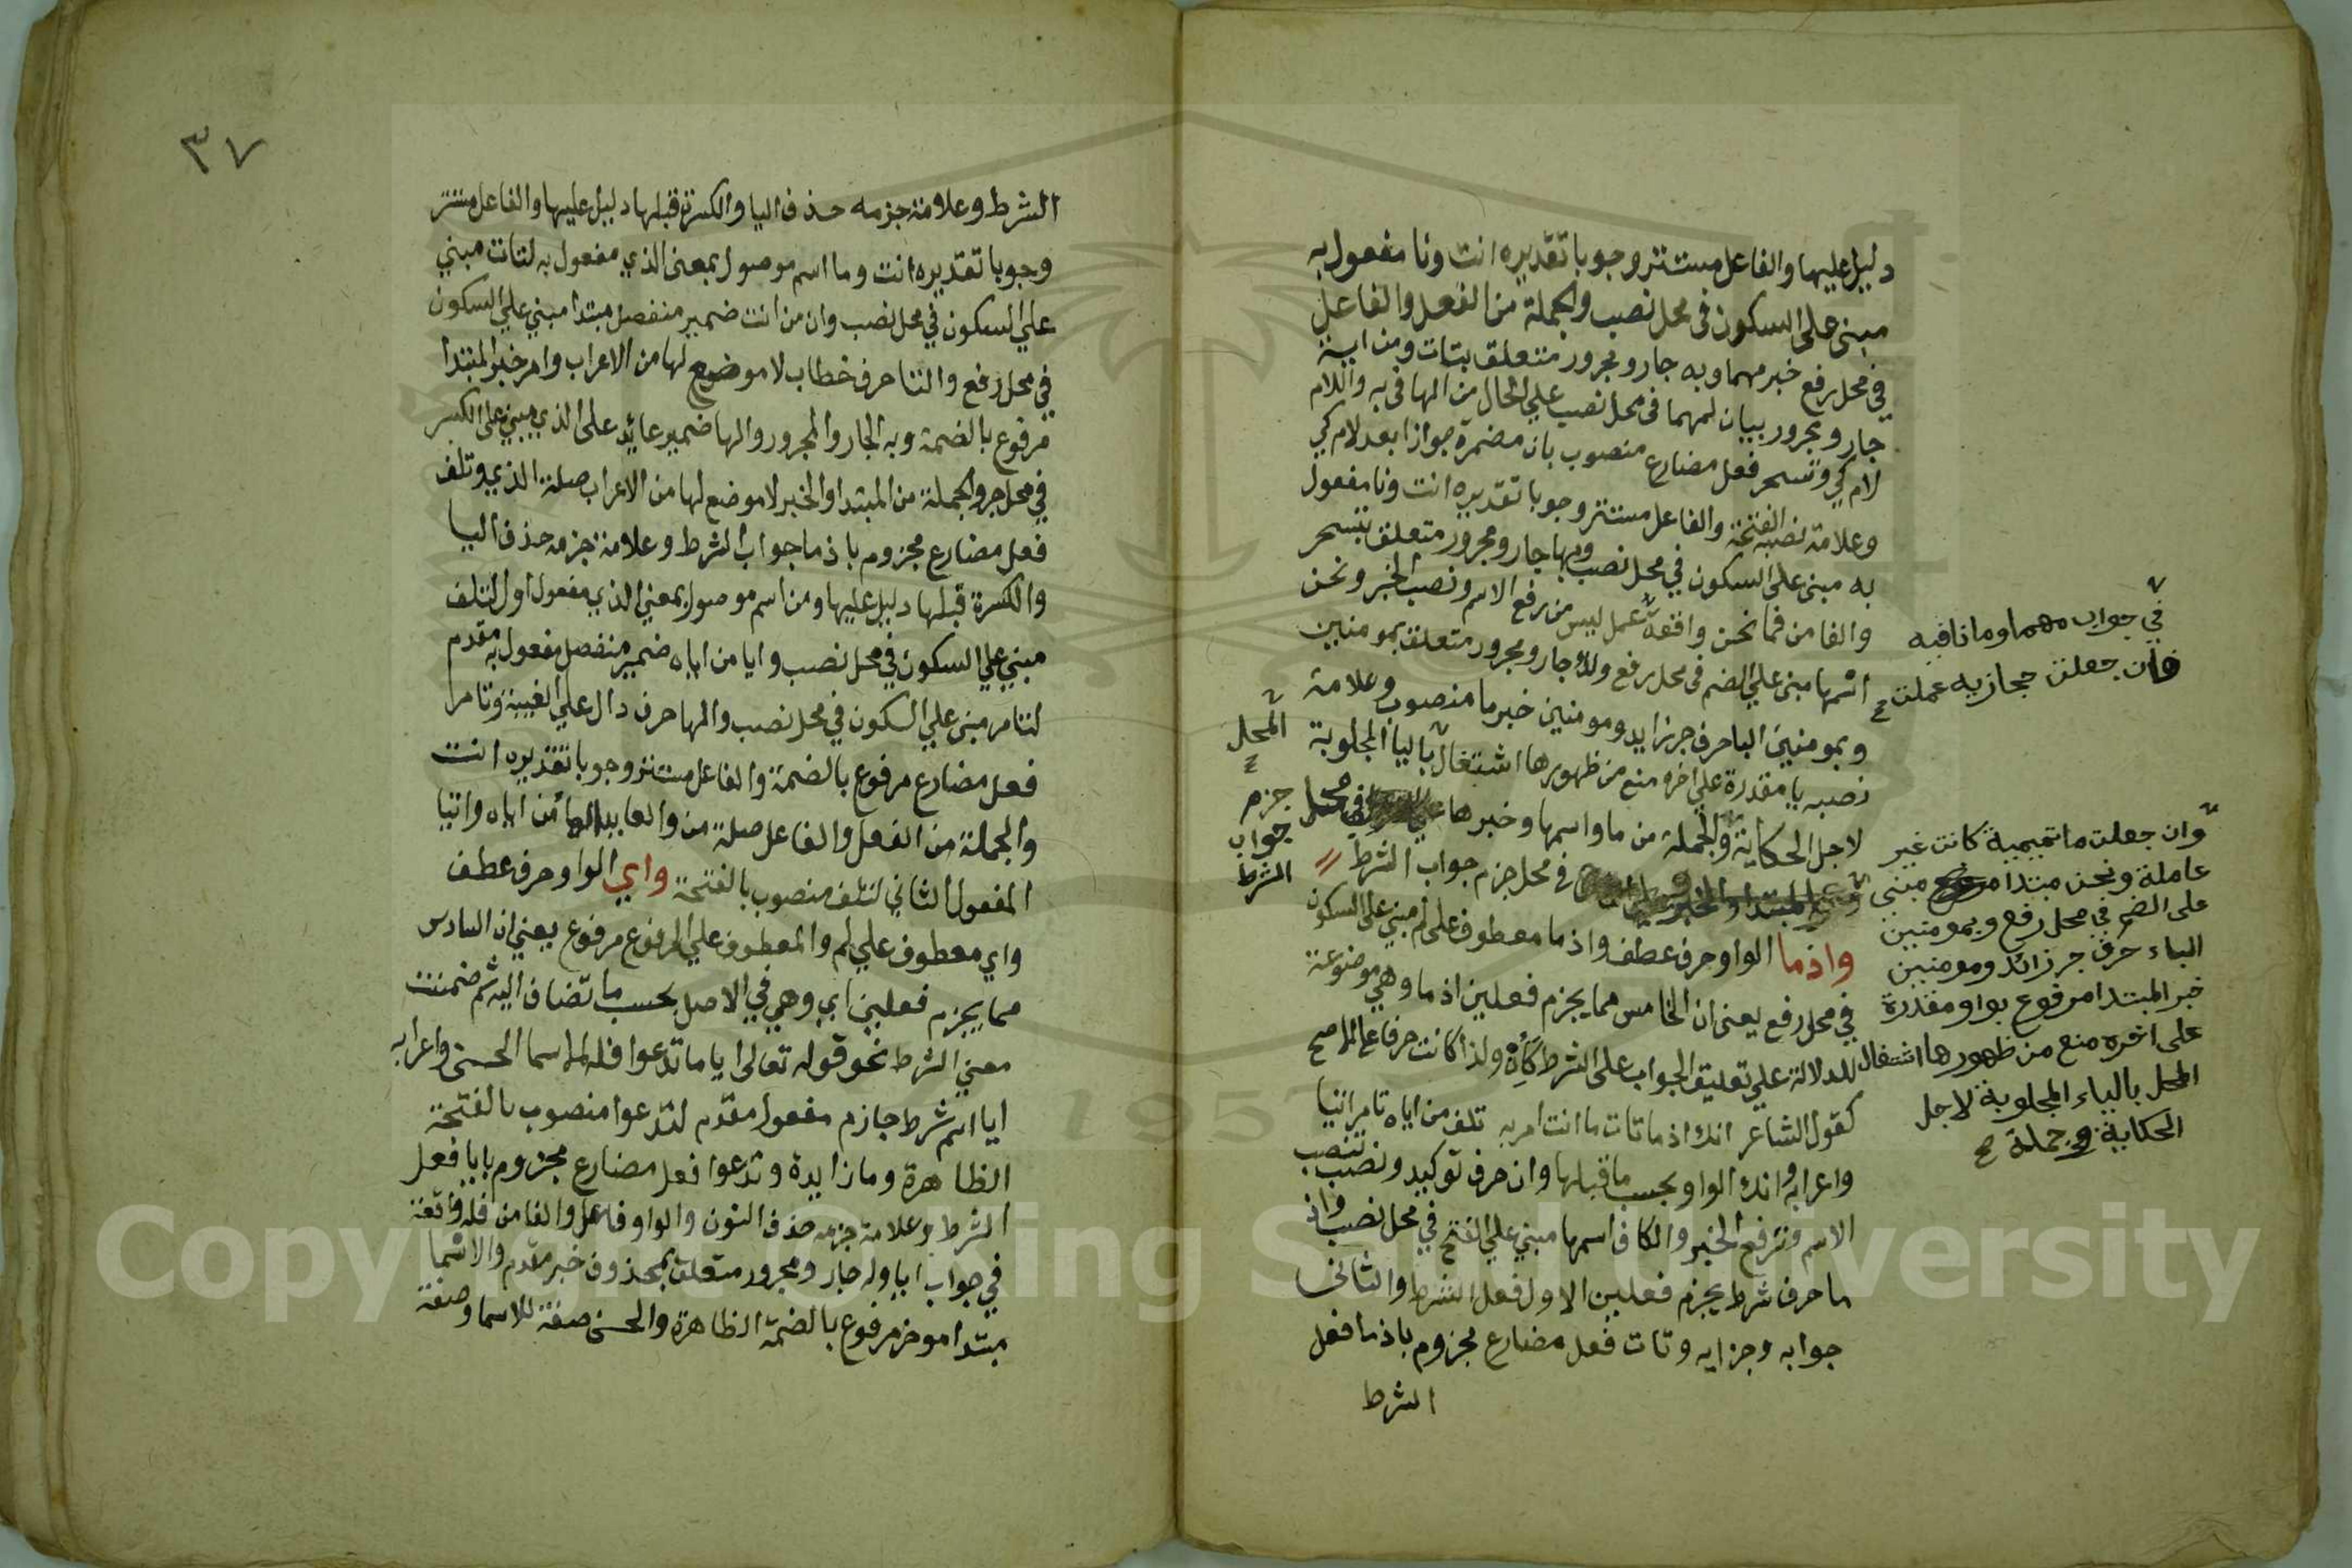 دليل عليها والفاعل مستتر وجوبا تقديره انت ونا مفعول به
مبني على السكون في محل نصب والجملة من الفعل والفاعل
في محل رفع خبر مهما وبه جار ومجرور متعلق بتات ومن اية
جار ومجرور بيان لمهما في محل نصب علي الحال من الها في به واللام
لام كي وتسحر فعل مضارع منصوب بان مضمرة جوازا بعد لام كي
وعلامة نصبه الفتحة والفاعل مستتر وجوبا تقديره انت ونا مفعول
به مبني على السكون في محل نصب وبها جار ومجرور متعلق بتسحر
والفا من فما نحن واقعة عمل ليس من رفع الاسم ونصب الخبر ونحن
اسمها مبني علي الضم في محل رفع ولك جار ومجرور متعلق بمومنين
وبمومنين البا حرف جر زايد ومومنين خبر ما منصوب وعلامة
نصبه يا مقدرة علي اخره منع من ظهورها اشتغال باليا المجلوبة
لاجل الحكاية والجملة من ما واسمها وخبرها في محل جزم
في محل جزم جواب الشرط
واذما الواو حرف عطف واذ ما معطوف على لم مبني علي السكون
في محل رفع يعني ان الخامس مما يجزم فعلين اذ ما وهي موضوعة
للدلالة علي تعليق الجواب على الشرط كأن ولذا كانت حرفا علي الاصح
كقول الشاعر انك اذ ما تات ما انت امر به تلف من اياه تامر اتيا
واعرابه وانك الواو بحسب ما قبلها وان حرف توكيد ونصب تنصب
الاسم وترفع الخبر والكاف اسمها مبني علي الفتح في محل نصب واذ
ما حرف شرط يجزم فعلين الاول فعل الشرط والثاني
جوابه وجزايه وتات فعل مضارع مجزوم باذ ما فعل
الشرط
في جواب مهما وما نافيه
فان جعلت حجازيه عملت
المحل
جواب
الشرط
وان جعلت ما تميمية كانت غير
عاملة ونحن مبتدا مبني
على الضم في محل رفع وبمومنين
الباء حرف جر زائد ومومنين
خبر المبتدا مرفوع بواو مقدرة
على اخره منع من ظهورها اشتغال
المحل بالياء المجلوبة لاجل
الحكاية وجملة
٣٧
الشرط وعلامة جزمه حذف اليا والكسرة قبلها دليل عليها والفاعل مستتر
وجوبا تقديره انت وما اسم موصول بمعنى الذي مفعول به لتات مبني
علي السكون في محل نصب وان من انت ضمير منفصل مبتدا مبني علي السكون
في محل رفع والتا حرف خطاب لا موضع لها من الاعراب وامر خبر المبتدا
مرفوع بالضمة وبه الجار والمجرور والها ضمير عائد على الذي مبني على الكسر
في محل جر والجملة من المبتدا والخبر لا موضع لها من الاعراب صلة الذي وتلف
فعل مضارع مجزوم باذ ما جواب الشرط وعلامة جزمه حذف اليا
والكسرة قبلها دليل عليها ومن اسم موصول بمعني الذي مفعول اول لتلف
مبني علي السكون في محل نصب وايا من اياه ضمير منفصل مفعول به مقدم
لتامر مبني علي السكون في محل نصب والها حرف دال علي الغيبة وتامر
فعل مضارع مرفوع بالضمة والفاعل مستتر وجوبا تقديره انت
والجملة من الفعل والفاعل صلة من والعايد الها من اياه واتيا
المفعول الثاني لتلف منصوب بالفتحة واي الواو حرف عطف
واي معطوف علي لم والمعطوف علي المرفوع مرفوع يعني ان السادس
مما يجزم فعلين اي وهي في الاصل بحسب ما تضاف اليه ثم ضمنت
معني الشرط نحو قوله تعالى ايا ما تدعوا فله الاسما الحسنى واعرابه
ايا اسم شرط جازم مفعول مقدم لتدعوا منصوب بالفتحة
الظاهرة وما زايدة وتدعوا فعل مضارع مجزوم بايا فعل
الشرط وعلامة جزمه حذف النون والواو فاعل والفا من فله واقعة
في جواب ايا وله جار ومجرور متعلق بمحذوف خبر مقدم والاسما
مبتدا موخر مرفوع بالضمة الظاهرة والحسنى صفة للاسما وصفة
Copyright © King Saud University
1957